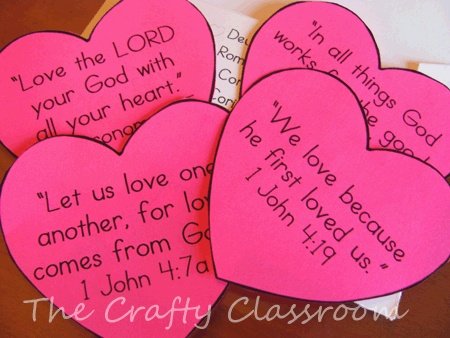 "Love the LORD
your God with
all your heart."
"In all things God
works
the
"Let us love one
another, for
comes from
1 John 4:7a
"We love because
he first loved us."
1 John 4:19
The Crafty Classroom